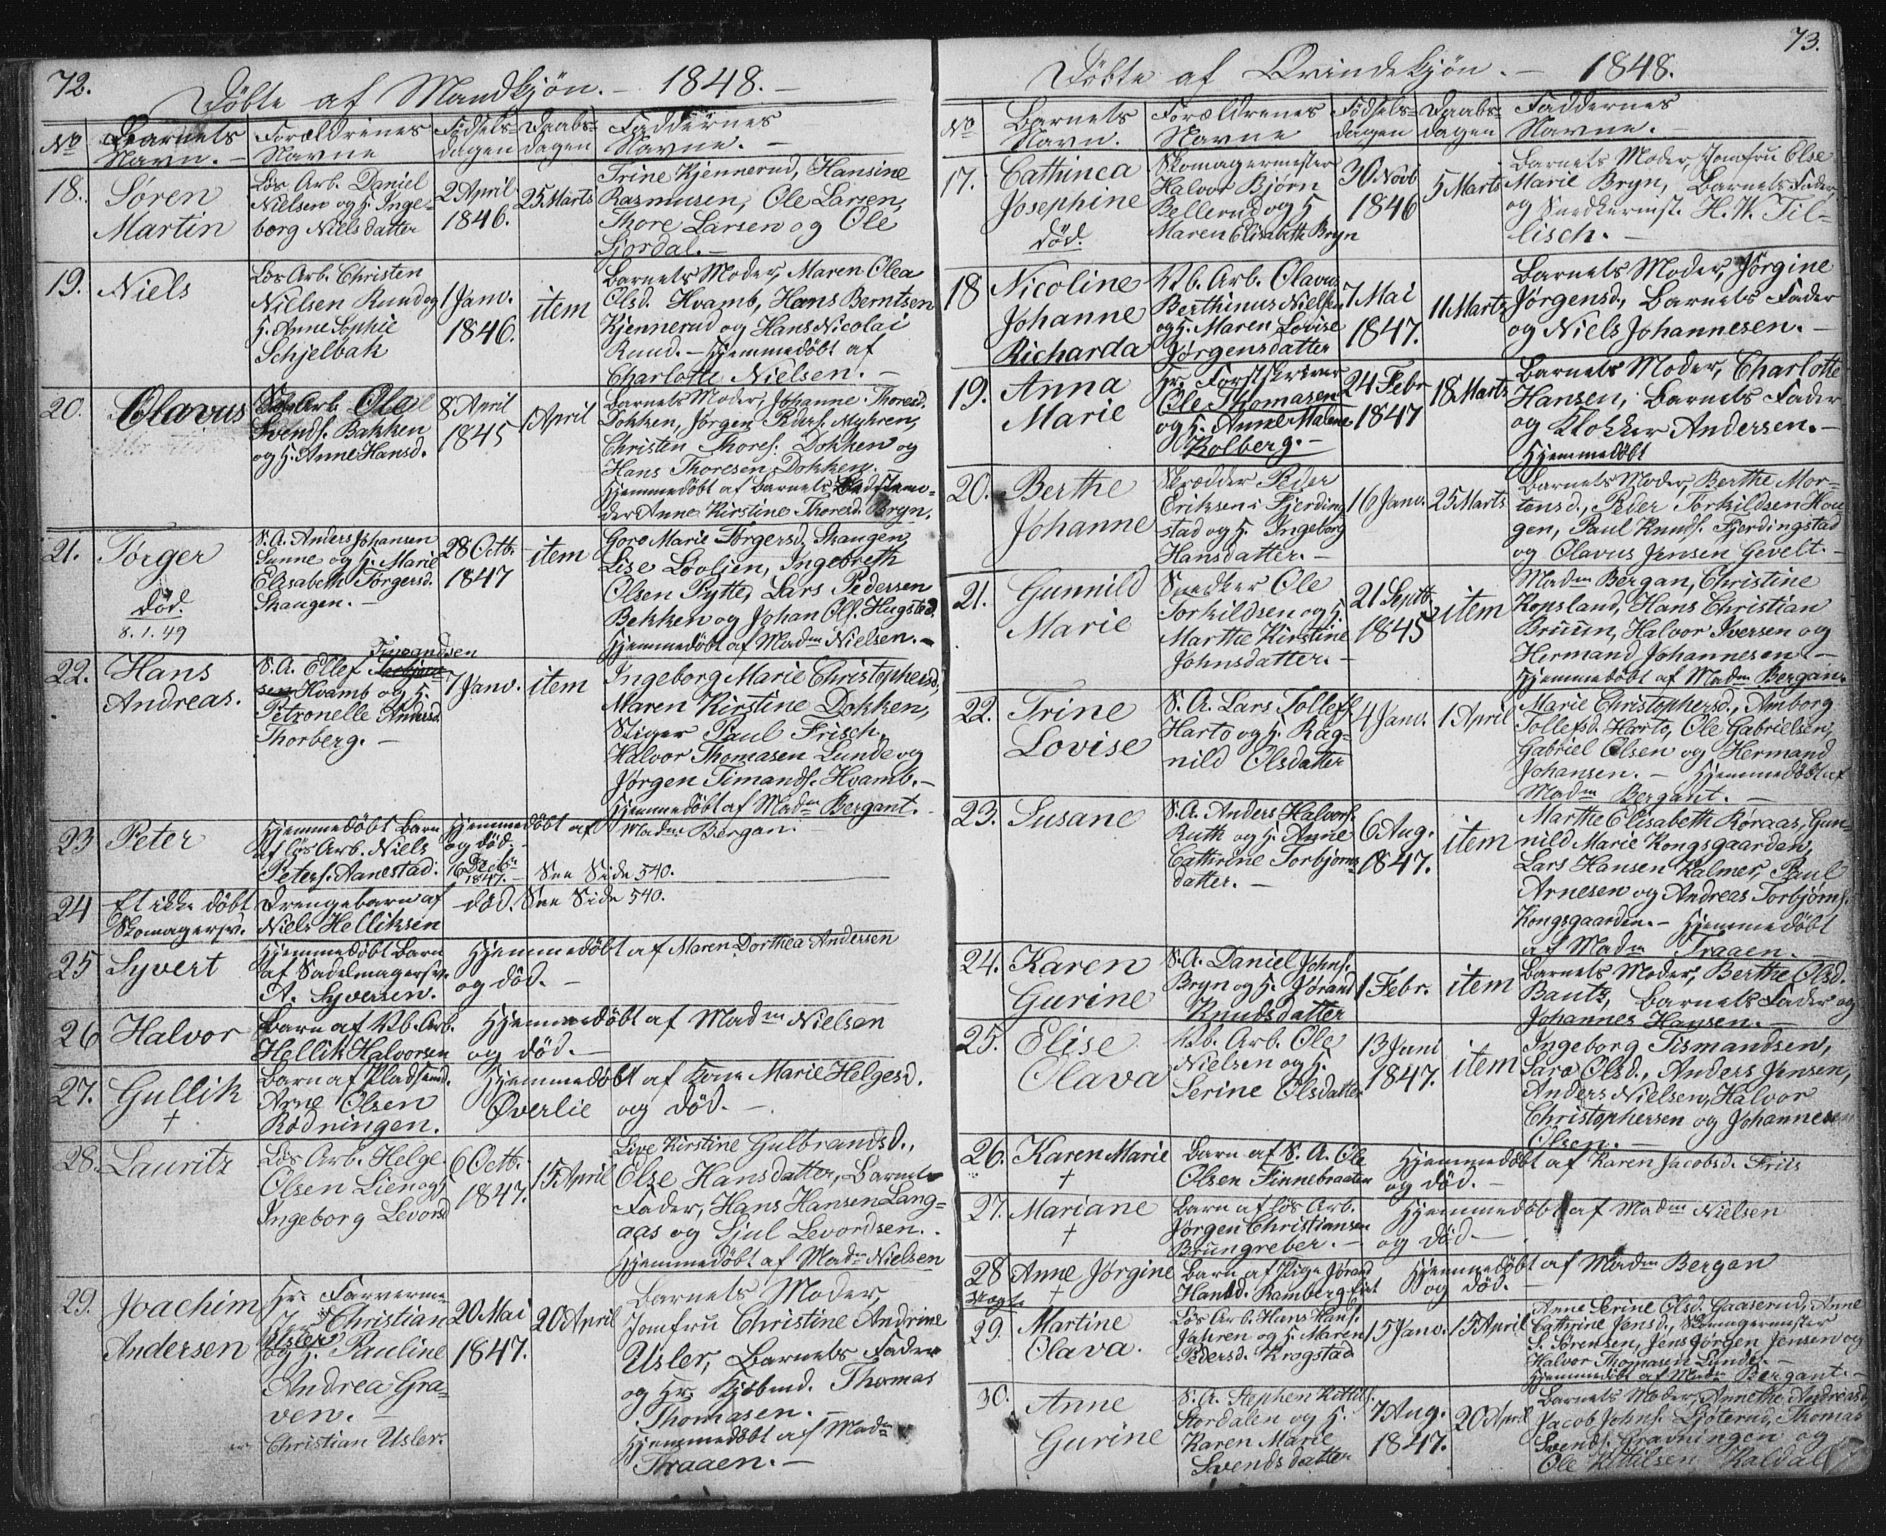 72.
Døbte af Mandkjøn. – 1848. –
No
Barnets Navn. –
Forældrenes Navne
Fødsels-dagen
Daabs-dagen
Faddernes Navne. –
18.
Søren
Martin
Løs Arb. Daniel
Nielsen og H. Inge-
borg Nielsdatter
2 April
1846.
25 Marts
Trine Kjennerud, Hansine
Rasmussen, Ole Larsen,
Thore Larsen og Ole
Fjordal. –
19.
Niels
Løs Arb. Christen
Nielsen Rund og
H. Anne Sophie
Schjelbak
1 Janv.
1846.
item
Barnets Moder, Maren Olea
Olsd. Kvamb, Hans Berntsen
Kjennerud og Hans Nicolai
Rund. – Hjemmedøbt af
Charlotte Nielsen. –
20.
Olavus
Arb. Ole
Svends. Bakken
og H. Anne Hansd.
8 April
1845
1 April
Barnets Moder, Johanne Thoresd.
Dokken, Jørgen Peders. Myhren,
Christen Thores. Dokken og
Hans Thoresen Dokken.
Hjemmedøbt af Barnets
der Anne Kirstine Thoresd. Bryn.
21.
Torger
død.
8.1.49
S. A. Anders Johansen
Sunne og H. Marie
Elisabeth Torgersd.
Skaugen. –
28 Octb.
1847
item
Goro Marie Torgersd. Skaugen,
Lise Løvlien, Ingebreth
Olsen Pytte, Lars Pedersen
Bekken og Johan Ols. Hugstad.
Hjemmedøbt af Madm Nielsen. –
22.
Hans
Andreas.
Timandsen
S. A. Ellef
Hvamb og H.
Petronelle Andersd.
Thorberg. –
7 Janv.
item
Ingeborg Marie Christophersd,
Maren Kirstine Dokken,
Stiger Paul Frisch,
Halvor Thomasen Lunde og
Jørgen Timands. Hvamb. –
Hjemmedøbt af Madm Bergant. –
23
Peter
Hjemmedøbt Barn
af løs Arb. Niels
Peters. Aanestad.
Hjemmedøbt af Madm Bergan.
og død. –
16 Decbr
1847. – See Side 540.
24
Et ikke døbt Drengebarn af
Skomagersv. Niels Helliksen
død. See Side 540.
25
Syvert
Hjemmedøbt Barn
af Sadelmagersv.
A. Syversen.
Hjemmedøbt af Maren Dorthea Andersen
og død. –
26
Halvor
Barn af Vb. Arb.
Hellik Halvorsen
Hjemmedøbt af Madm Nielsen
og død. –
27.
Gullik
†
Barn af Pladsemd.
Arne Olsen
Rødningen.
Hjemmedøbt af Kone Marie Helgesd.
Øverlie og død. –
28.
Lauritz
Løs Arb. Helge
Olsen Lien og H.
Ingeborg Levord
6 Octb.
1847.
15 April
Live Kirstine Gulbrandsd.,
Else Hansdatter, Barnets
Fader, Hans Hansen Lang-
aas og Sjul Levordsen. –
Hjemmedøbt af Madm Nielsen
29.
Joachim
Andersen
Hr. Farverme-
Christian
Usler
og H. Pauline
Andrea Gra-
ven. –
Christian Usler.
20 Mai
1847.
20 April
Barnets Moder,
Jomfru Christine Andrine
Usler, Barnets Fader
og Hr. Kjøbmd. Thomas
Thomasen. –
Hjemmedøbt af Madm
Traaen. –
73.
Døbte af Qvindekjøn. – 1848.
No
Barnets Navn.
Forældrenes Navne
Fødsels-dagen
Daabs-dagen
Faddernes Navne. –
17.
Cathinca
Josephine
død.
Skomagermester
Halvor Bjørn
Bellerud og H.
Maren Elisabeth Bryn
30 Novb
1846
5 Marts
Barnets Moder, Jomfru Else
Marie Bryn, Barnets Fader
og Snedkermst. H. W. Til-
lisch. –
18
Nicoline
Johanne
Richarda
Vb. Arb. Olavus
Berthinus Nielsen
og H. Maren Lovise
Jørgensdatter
7 Mai
1847.
11 Marts
Barnets Moder, Jørgine
Jørgensd., Barnets Fader
og Niels Johannesen. –
19.
Anna
Marie
Hr. Forstskriver
Ole Thomasen
og H. Anne Malene
Kolberg. –
24 Febr
1847
18 Marts
Barnets Moder, Charlotte
Hansen, Barnets Fader
og Klokker Andersen. –
Hjemmedøbt
20.
Berthe
Johanne
Skrædder Peder
Eriksen i Fjerding-
stad og H. Ingeborg
Hansdatter. –
16 Janv.
25 Marts
Barnets Moder, Berthe Mor-
tensd., Peder Torkildsen Hou-
gen, Paul Knuds. Fjerdingstad
og Olavus Jensen Gevelt. –
21.
Gunnild
Marie
Snedker Ole
Torkildsen og H.
Marthe Kirstine
Johnsdatter. –
21 Septb.
1845
item
Madm Bergan, Christine
Kopsland, Hans Christian
Bruun, Halvor Iversen og
Hermand Johannesen –
Hjemmedøbt af Madm Bergan.
22.
Trine
Lovise
S. A. Lars Tollefs.
Harto og H. Rag-
nild Olsdatter
4 Janv.
1 April
Marie Christophersd., Amborg
Tollefsd. Harto, Ole Gabrielsen,
Gabriel Olsen og Hermand
Johansen. – Hjemmedøbt af
Madm Bergant. –
23.
Susane
S. A. Anders Halvors.
Ruth og H. Anne
Cathrine Torbjørns-
datter. –
6 Aug.
1847.
item
Marthe Elisabeth Røraas, Gun-
nild Marie Kongsgaarden,
Lars Hansen Kalmer, Paul
Arnesen og Andreas Torbjørns.
Kongsgaarden. – Hjemmedøbt
af Madm Traaen.
24.
Karen
Gurine
S. A. Daniel Johns.
Bryn og H. Jørand
Knudsdatter
1 Febr.
item
Barnets Moder, Berthe Olsd.
Bautz, Barnets Fader og
Johannes Hansen. –
25.
Elise
Olava
Vb. Arb. Ole
Nielsen og H.
Serine Olsdatter
13 Juni
1847.
item
Ingeborg Tismandsen,
Saro Olsd., Anders Jensen,
Anders Nielsen, Halvor
Christophersen og Johannesen
Olsen. –
26.
Karen Marie
†
Barn af S. A. Ole
Olsen Finnebraaten
Hjemmedøbt af Karen Jacobsd. Friis
og død. –
27.
Mariane
†
Barn af løs Arb.
Jørgen Christiansen
Brungreber. –
Hjemmedøbt af Madm Nielsen
og død. –
28
Uægte
Anne Jørgine
†
Barn af Pige Jørand
Hansd. Ramberg
Hjemmedøbt af Madm Bergan
og død.
29.
Martine
Olava.
Løs Arb. Hans Hans.
Jahren og H. Maren
Pedersd. Krogstad
15 Janv.
15 April
Anne Serine Olsd. Gaaserud, Anne
Cathrine Jensd., Skomagermester
S. Sørensen, Jens Jørgen Jensen og
Halvor Thomasen Lunde. –
Hjemmedøbt af Madm Bergant. –
30.
Anne
Gurine
S. A. Stephen Kittils.
Stordalen og H.
Karen Marie
Svendsdatter
7 Aug.
1847.
20 April
Barnets Moder, Annethe Andreasd.
Jacob Johns. Ljøterud, Thomas
Svends. Gravningen og
Ole Kittilsen Kaldal